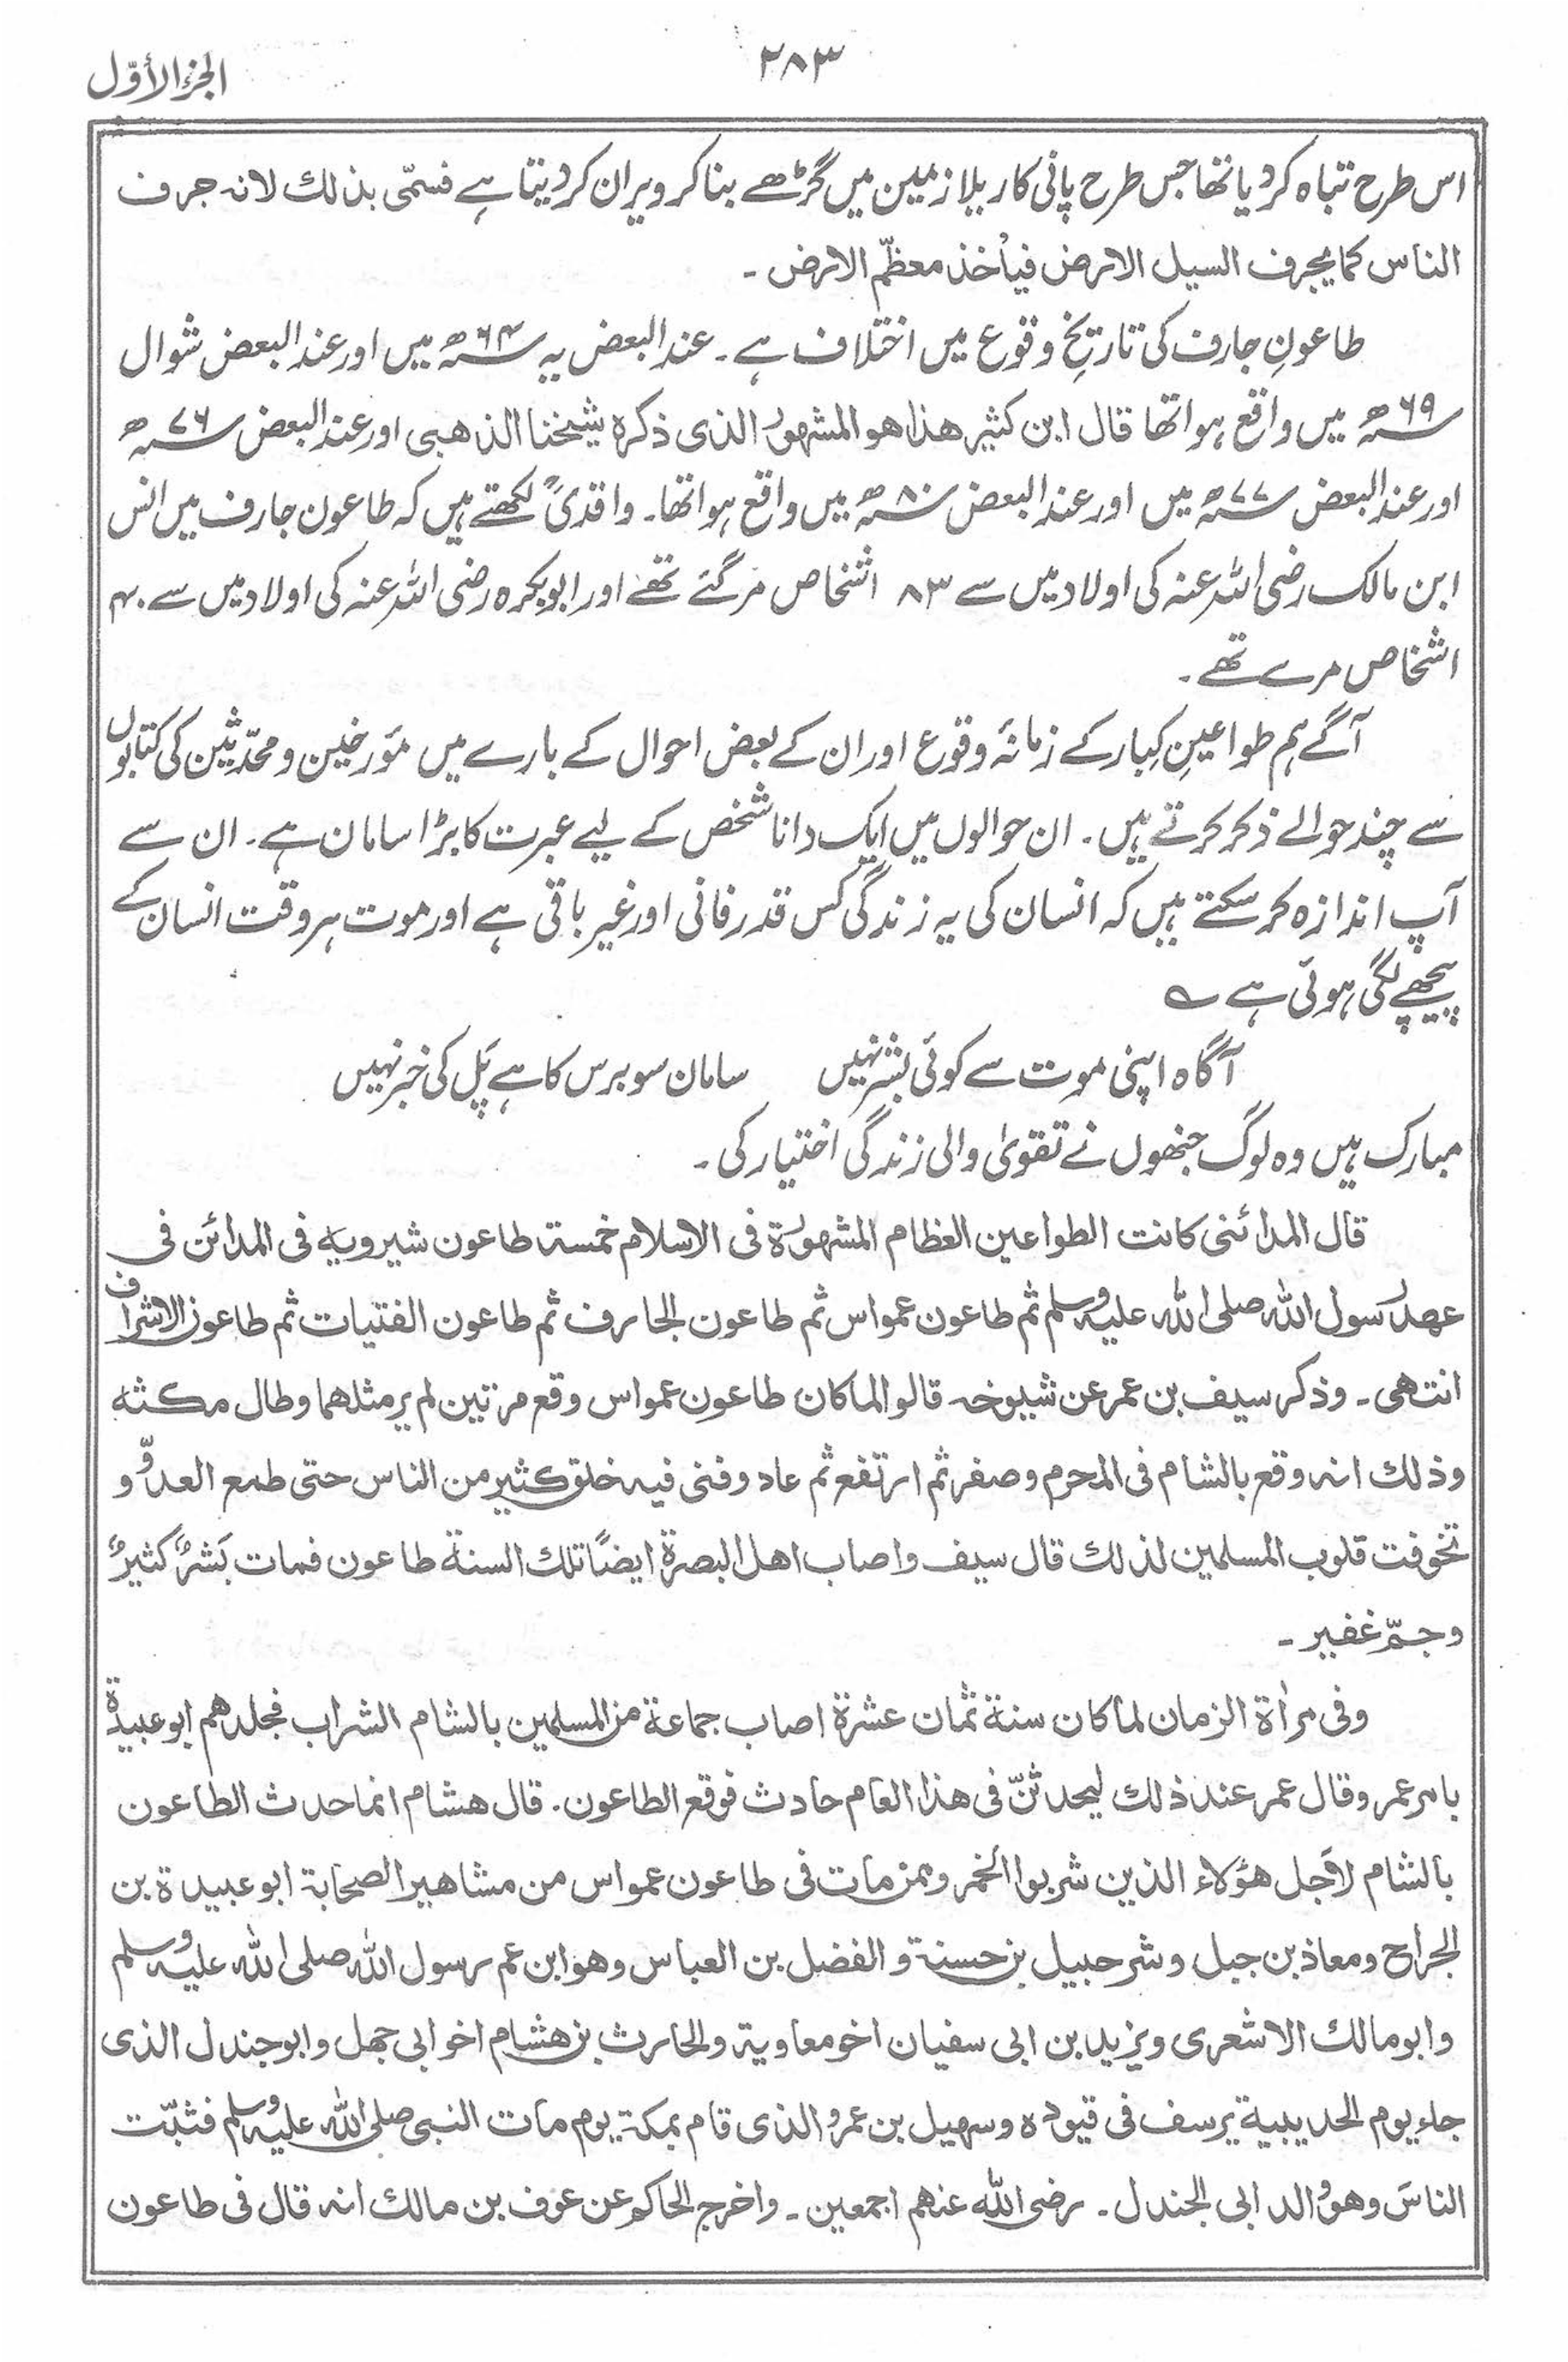 الجزء الأوّل
۲۸۳
اس طرح تباہ کر دیا تھا جس طرح پانی کا ریلا زمین میں گڑھے بنا کر ویران کر دیتا ہے فسمّی بذلك لانه جرف
الناس كما يجرف السيل الارض فيأخذ معظّم الارض ۔
طاعونِ جارف کی تاریخِ وقوع میں اختلاف ہے ۔ عند البعض یہ سنہ ۶۴ھ میں اور عند البعض شوال
سنہ ۶۹ھ میں واقع ہوا تھا قال ابن كثير هذا هو المشهور الذى ذكره شيخنا الذهبى اور عند البعض سنہ ۷۶ھ
اور عند البعض سنہ ۷۷ھ میں اور عند البعض سنہ ۸۰ھ میں واقع ہوا تھا ۔ واقدیؒ لکھتے ہیں کہ طاعون جارف میں انس
ابن مالک رضی اللہ عنہ کی اولاد میں سے ۸۳ اشخاص مر گئے تھے اور ابوبکرہ رضی اللہ عنہ کی اولاد میں سے ۴۰
اشخاص مرے تھے ۔
آگے ہم طواعینِ کِبار کے زمانۂ وقوع اور ان کے بعض احوال کے بارے میں مؤرخین و محدّثین کی کتابوں
سے چند حوالے ذکر کرتے ہیں ۔ ان حوالوں میں ایک دانا شخص کے لیے عبرت کا بڑا سامان ہے ۔ ان سے
آپ اندازہ کر سکتے ہیں کہ انسان کی یہ زندگی کس قدر فانی اور غیر باقی ہے اور موت ہر وقت انسان کے
پیچھے لگی ہوئی ہے ؎
آگاہ اپنی موت سے کوئی بشر نہیں سامان سو برس کا ہے پَل کی خبر نہیں
مبارک ہیں وہ لوگ جنھوں نے تقویٰ والی زندگی اختیار کی ۔
قال المدائنى كانت الطواعين العظام المشهورة فى الاسلام خمسة طاعون شيرويه فى المدائن فى
عهد رسول الله صلى الله عليه وسلم ثم طاعون عمواس ثم طاعون الجارف ثم طاعون الفتيات ثم طاعون الاشراف
انتهى ۔ وذكر سيف بن عمر عن شيوخه قالوا لما كان طاعون عمواس وقع مرتين لم ير مثلهما وطال مكثه
وذلك انه وقع بالشام فى المحرم وصفر ثم ارتفع ثم عاد وفنى فيه خلق كثير من الناس حتى طمع العدوّ و
تخوفت قلوب المسلمين لذلك قال سيف واصاب اهل البصرة ايضًا تلك السنة طاعون فمات بَشَرٌ كثيرٌ
وجمّ غفير ۔
وفى مرأة الزمان لما كان سنة ثمان عشرة اصاب جماعة من المسلمين بالشام الشراب فجلدهم ابو عبيدة
بامر عمر وقال عمر عند ذلك ليحدثنّ فى هذا العام حادث فوقع الطاعون ۔ قال هشام انما حدث الطاعون
بالشام لاَجل هؤلاء الذين شربوا الخمر وممن مات فى طاعون عمواس من مشاهير الصحابة ابو عبيدة بن
الجراح ومعاذ بن جبل وشرحبيل بن حسنة و الفضل بن العباس وهو ابن عم رسول الله صلى الله عليه وسلم
وابو مالك الاشعرى ويزيد بن ابى سفيان اخو معاوية والحارث بن هشام اخو ابى جهل وابو جندل الذى
جاء يوم الحديبية يرسف فى قيوده وسهيل بن عمرو الذى قام بمكة يوم مات النبى صلى الله عليه وسلم فثبّت
الناسَ وهو والد ابى الجندل ۔ رضى الله عنهم اجمعين ۔ واخرج الحاكم عن عوف بن مالك انه قال فى طاعون